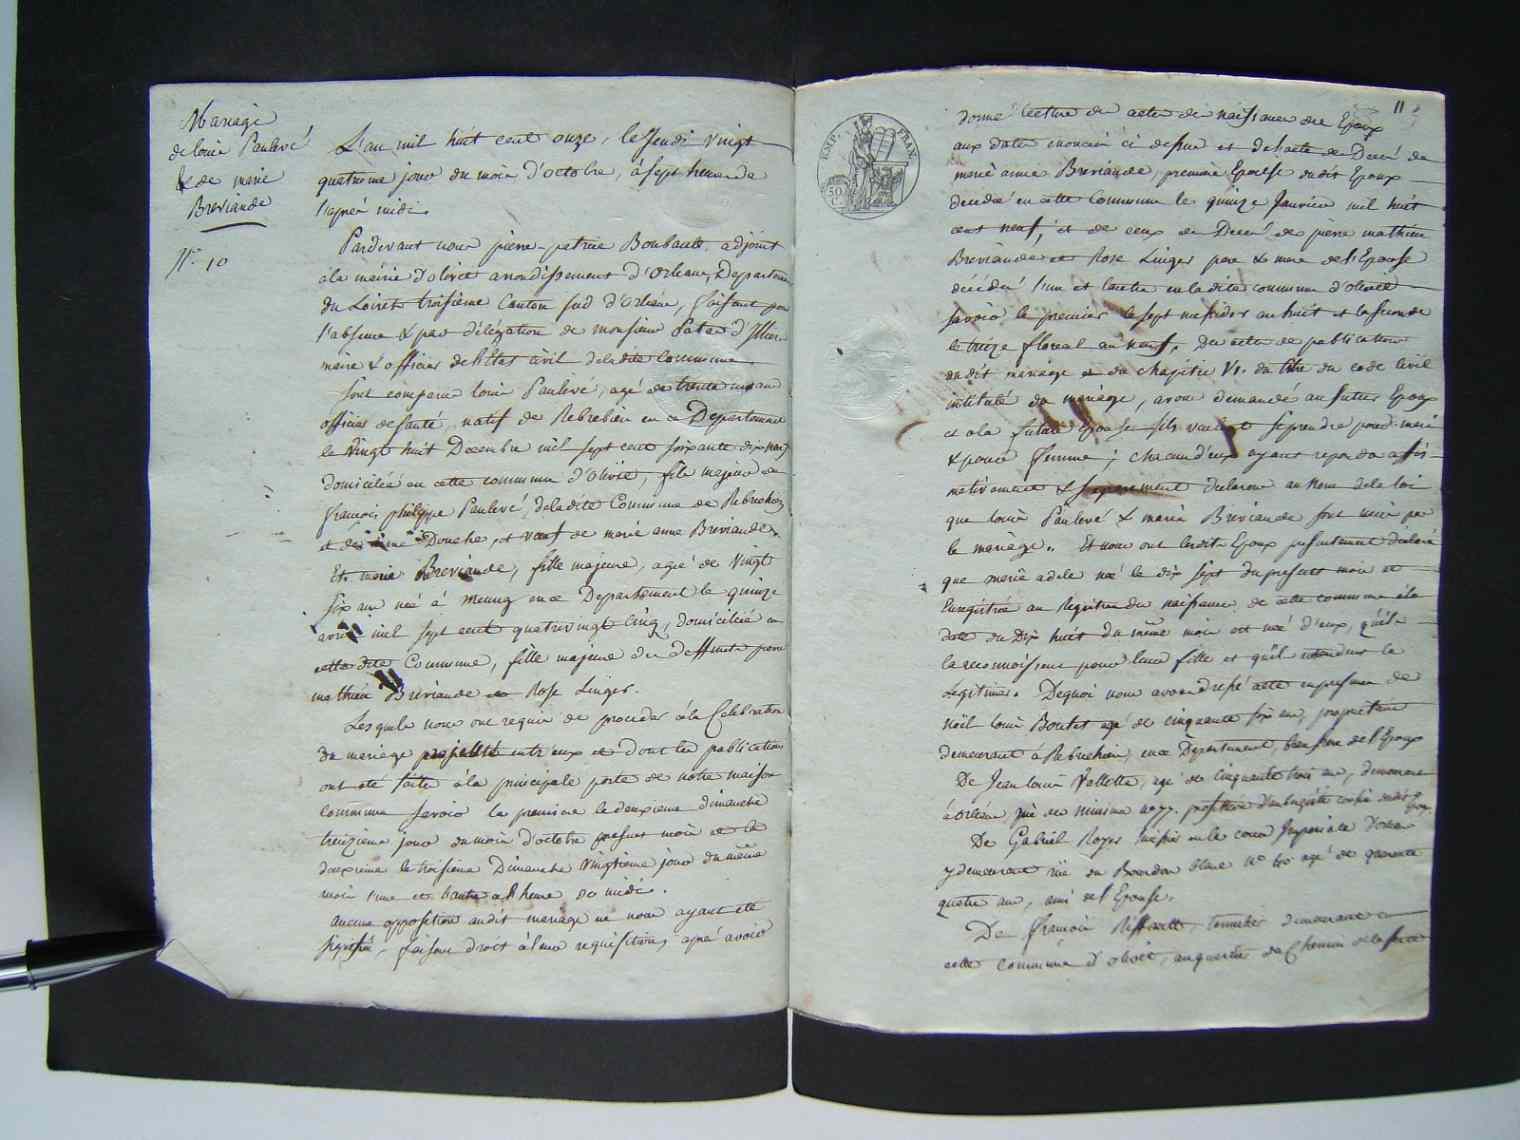 Mariage
de louis Paulevé
& de marie
Breviande
N.o 10
L'an mil huit cent onze, le Jeudi vingt
quatrieme jour du mois d'octobre, à sept heures de
l'aprés midi.
Pardevant nous pierre-patrice Boubault, adjoint
ala mairie d'olivet arrondissement d'Orleans, Departement
du Loiret troisième Canton sud d'orléans, faisant pour
l'absence & par délégation de monsieur
maire & officier de l'état civil deladite commune
sont comparu louis Paulevé, agé de trente un ans
officier de santé, natif de Rebrechien en ce Departement
le vingt huit Decembre mil sept cent soixante dix neuf
domicilié en cette commune d'olivet, fils majeur de
françois philippe Paulevé, deladite Commune de Rebrechien
et de Douche, et veuf de marie anne Breviande,
Et marie Breviande, fille majeure, agée de vingt
six ans née à meung en ce Departement le quinze
avril mil sept cent quatrevingt cinq, domiciliée en
cette dite Commune, fille majeure de deffunts pierre
mathieu Breviande et Rose Linger.
Lesquels nous ont requis de proceder à la Celebration
du mariage projetté entr'eux et dont les publications
ont été faites à la principale porte de notre maison
commune savoir la premiere le deuxieme dimanche
treizieme jour du mois d'octobre présent mois et la
deuxieme le troisieme Dimanche vingtieme jour du même
mois l'une et l'autre à l'heure de midi.
aucune opposition audit mariage ne nous ayant été
signifiée, faisant droit à leur requisition, aprés avoir
11
EMP. FRAN.
50 C
donné lecture des actes de naissance des Epoux
aux dates enoncées ci dessus et del'acte de Decés de
marie anne Breviande, premiere Epouse dudit Epoux
decedée en cette Commune le quinze Janvier mil huit
cent neuf, et de ceux de Decés de pierre mathieu
Breviande et Rose Linger pere & mere de l'Epouse
décédés l'un et l'autre en ladite commune d'olivet
savoir le premier le sept messidor an huit et la seconde
le treize floreal an neuf, Des actes de publication
dudit mariage et du chapitre VI. du titre du code Civil
intitulé du mariage, avons demandé au futur Epoux
et à la future Epouse s'ils veulent se prendre pour mari
& pour femme; chacun d'eux ayant repondu affir-
mativement & separement declarons au nom de la loi
que louis Paulevé & marie Breviande sont unis par
le mariage. Et nous ont lesdits Epoux presentement declaré
que marie adele née le dix sept du present mois et
Enregistrée au Registre des naissances de cette commune à la
date du Dix huit du même mois est née d'eux, qu'ils
la reconnoissent pour leur fille et qu'ils entendent la
Legitimer. Dequoi nous avons dressé acte en presence de
Noël louis Boutet agé de cinquante six ans, proprietaire
demeurant à Rebrechien, en ce Departement, beau frere de l'Epoux
De Jean louis Vallette, agé de cinquante trois ans, demeurant
à orléans, rüe des minimes n.o 37,
De Gabriel Royer huissier en la cour Imperiale d'orleans
y demeurant rüe du Bourdon blanc n.o 60 agé de quarante
quatre ans, ami de l'Epouse.
De françois Riffault, tonnelier demeurant en
cette commune d'olivet, au quartier du Chemin de la source